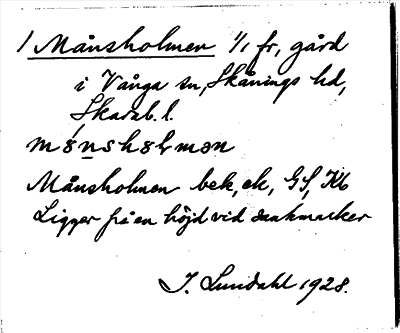 1 Månsholmen 1/1 fr, gård
i Vånga sn, Skånings hd,
Skarab. l.
Månsholmen bek, ek, GS, Kb
Ligger på en höjd vid sankmarker
J. Lundahl 1928.